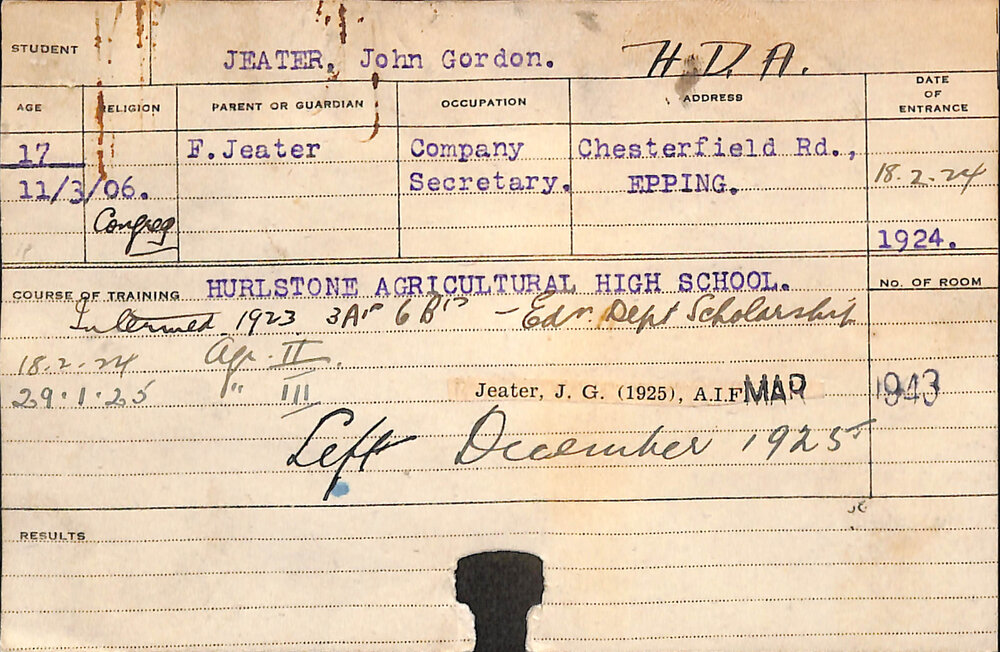 STUDENT JEATER, John Gordon. H.D.A.
AGE RELIGION PARENT OR GUARDIAN OCCUPATION ADDRESS DATE OF ENTRANCE
17 F.Jeater Company Chesterfield Rd.,
11/3/06. Secretary. EPPING. 18.2.24
Congreg
1924.
COURSE OF TRAINING HURLSTONE AGRICULTURAL HIGH SCHOOL. No. OF ROOM
Intermed 1923 3A's 6B's - Edn. Dept Scholarship
18.2.24 Agr. II.
29.1.25 " III
Jeater, J. G. (1925), A.I.F. MAR 1943
Left December 1925
RESULTS